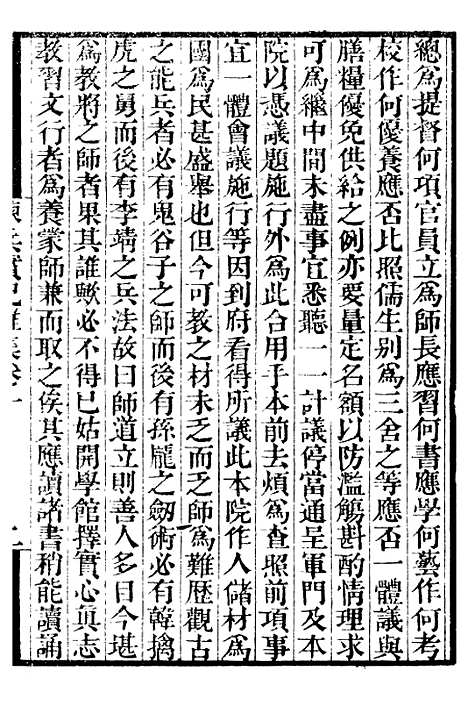 總為提督何項官員立為師長應習何書應學何藝作何考
校作何優養應否比照儒生別為三舍之等應否一體議與
膳糧優免供給之例亦要量定名額以防濫觴斟酌情理求
可為繼中間未盡事宜悉聽一一計議停當通呈軍門及本
院以憑議題施行外為此合用手本前去煩為查照前項事
宜一體會議施行等因到府看得所議此本院作人儲材為
國為民甚盛舉也但今可教之材未乏而乏師為難歷觀古
之能兵者必有鬼谷子之師而後有孫龐之劒術必有韓擒
虎之勇而後有李靖之兵法故曰師道立則善人多目今堪
為教將之師者果其誰歟必不得已姑開學館擇實心真志
教習文行者為養蒙師兼而取之俟其應讀諸書稍能讀誦
練兵實紀雜集卷一